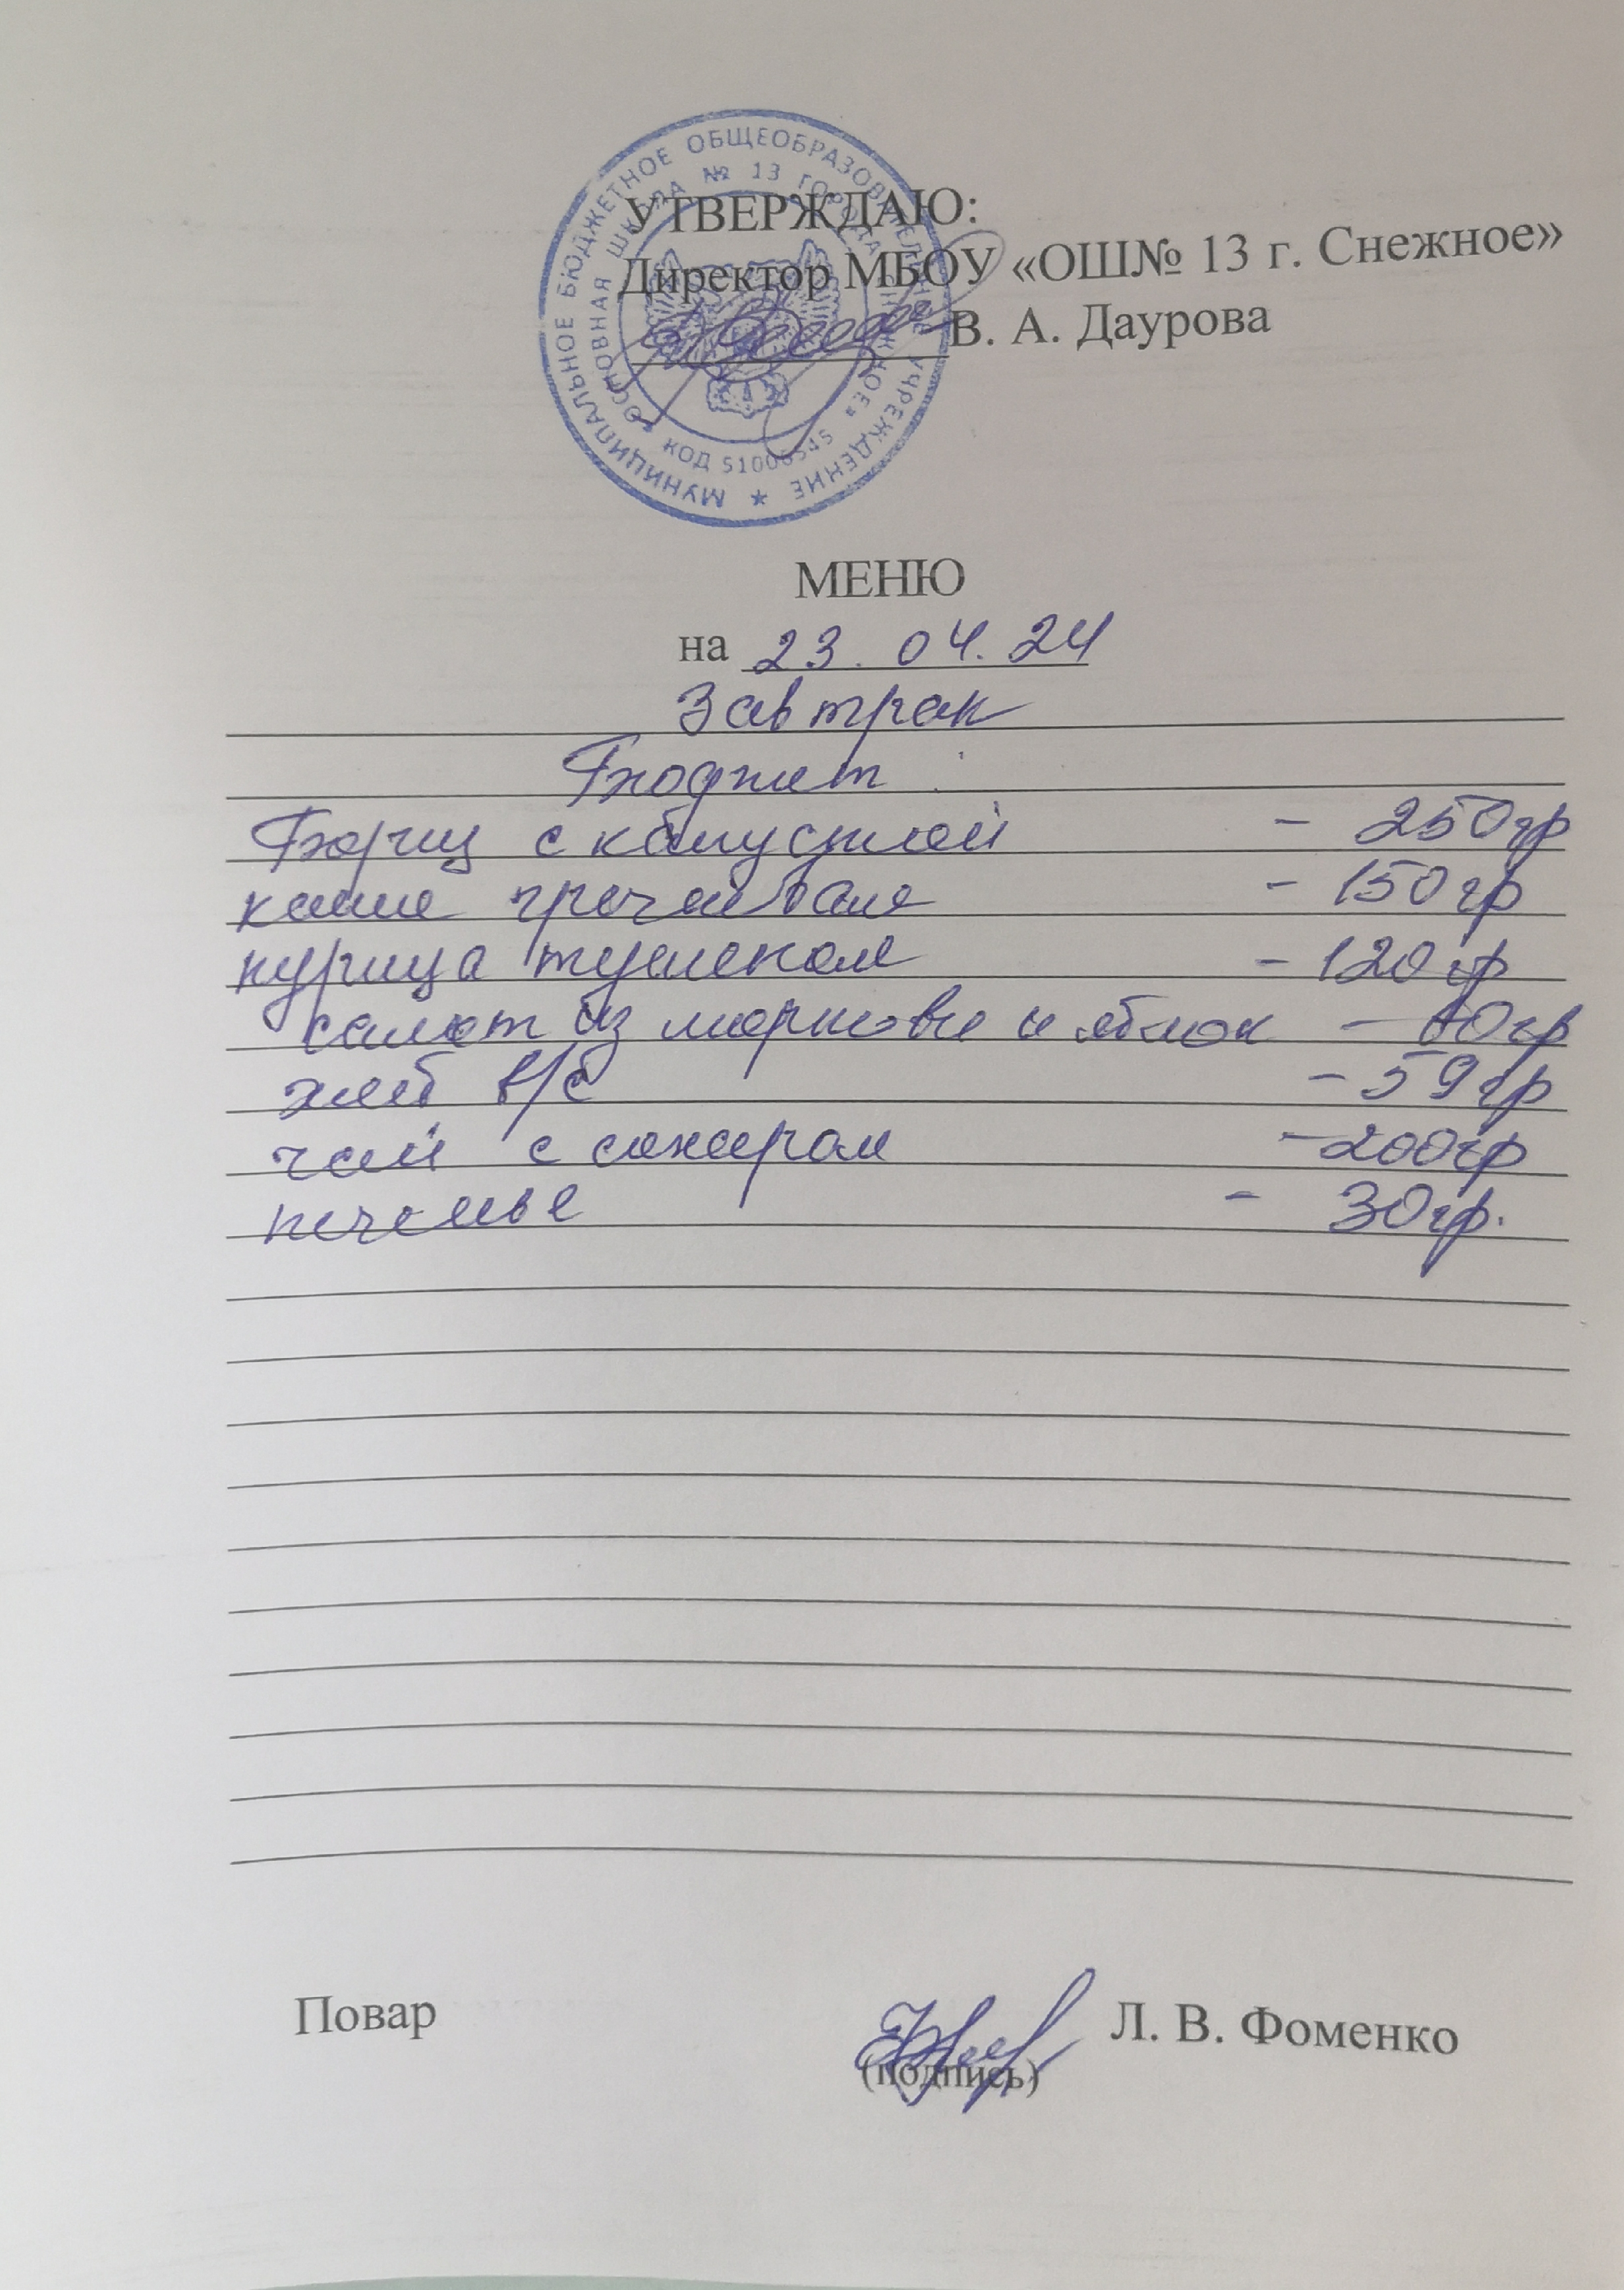 МУНИЦИПАЛЬНОЕ БЮДЖЕТНОЕ ОБЩЕОБРАЗОВАТЕЛЬНОЕ УЧРЕЖДЕНИЕ
ОСНОВНАЯ ШКОЛА № 13 ГОРОДА СНЕЖНОЕ»
КОД
УТВЕРЖДАЮ:
Директор МБОУ «ОШ№ 13 г. Снежное»
В. А. Даурова
МЕНЮ
на 23. 04. 24
Завтрак
Бюджет
Борщ с капустой - 250гр
каша гречневая - 150гр
курица тушеная - 120гр
салат из моркови и яблок - гр
хлеб в/с - 59гр
чай с сахаром - 200гр
печенье - 30гр.
Повар
Л. В. Фоменко
(подпись)